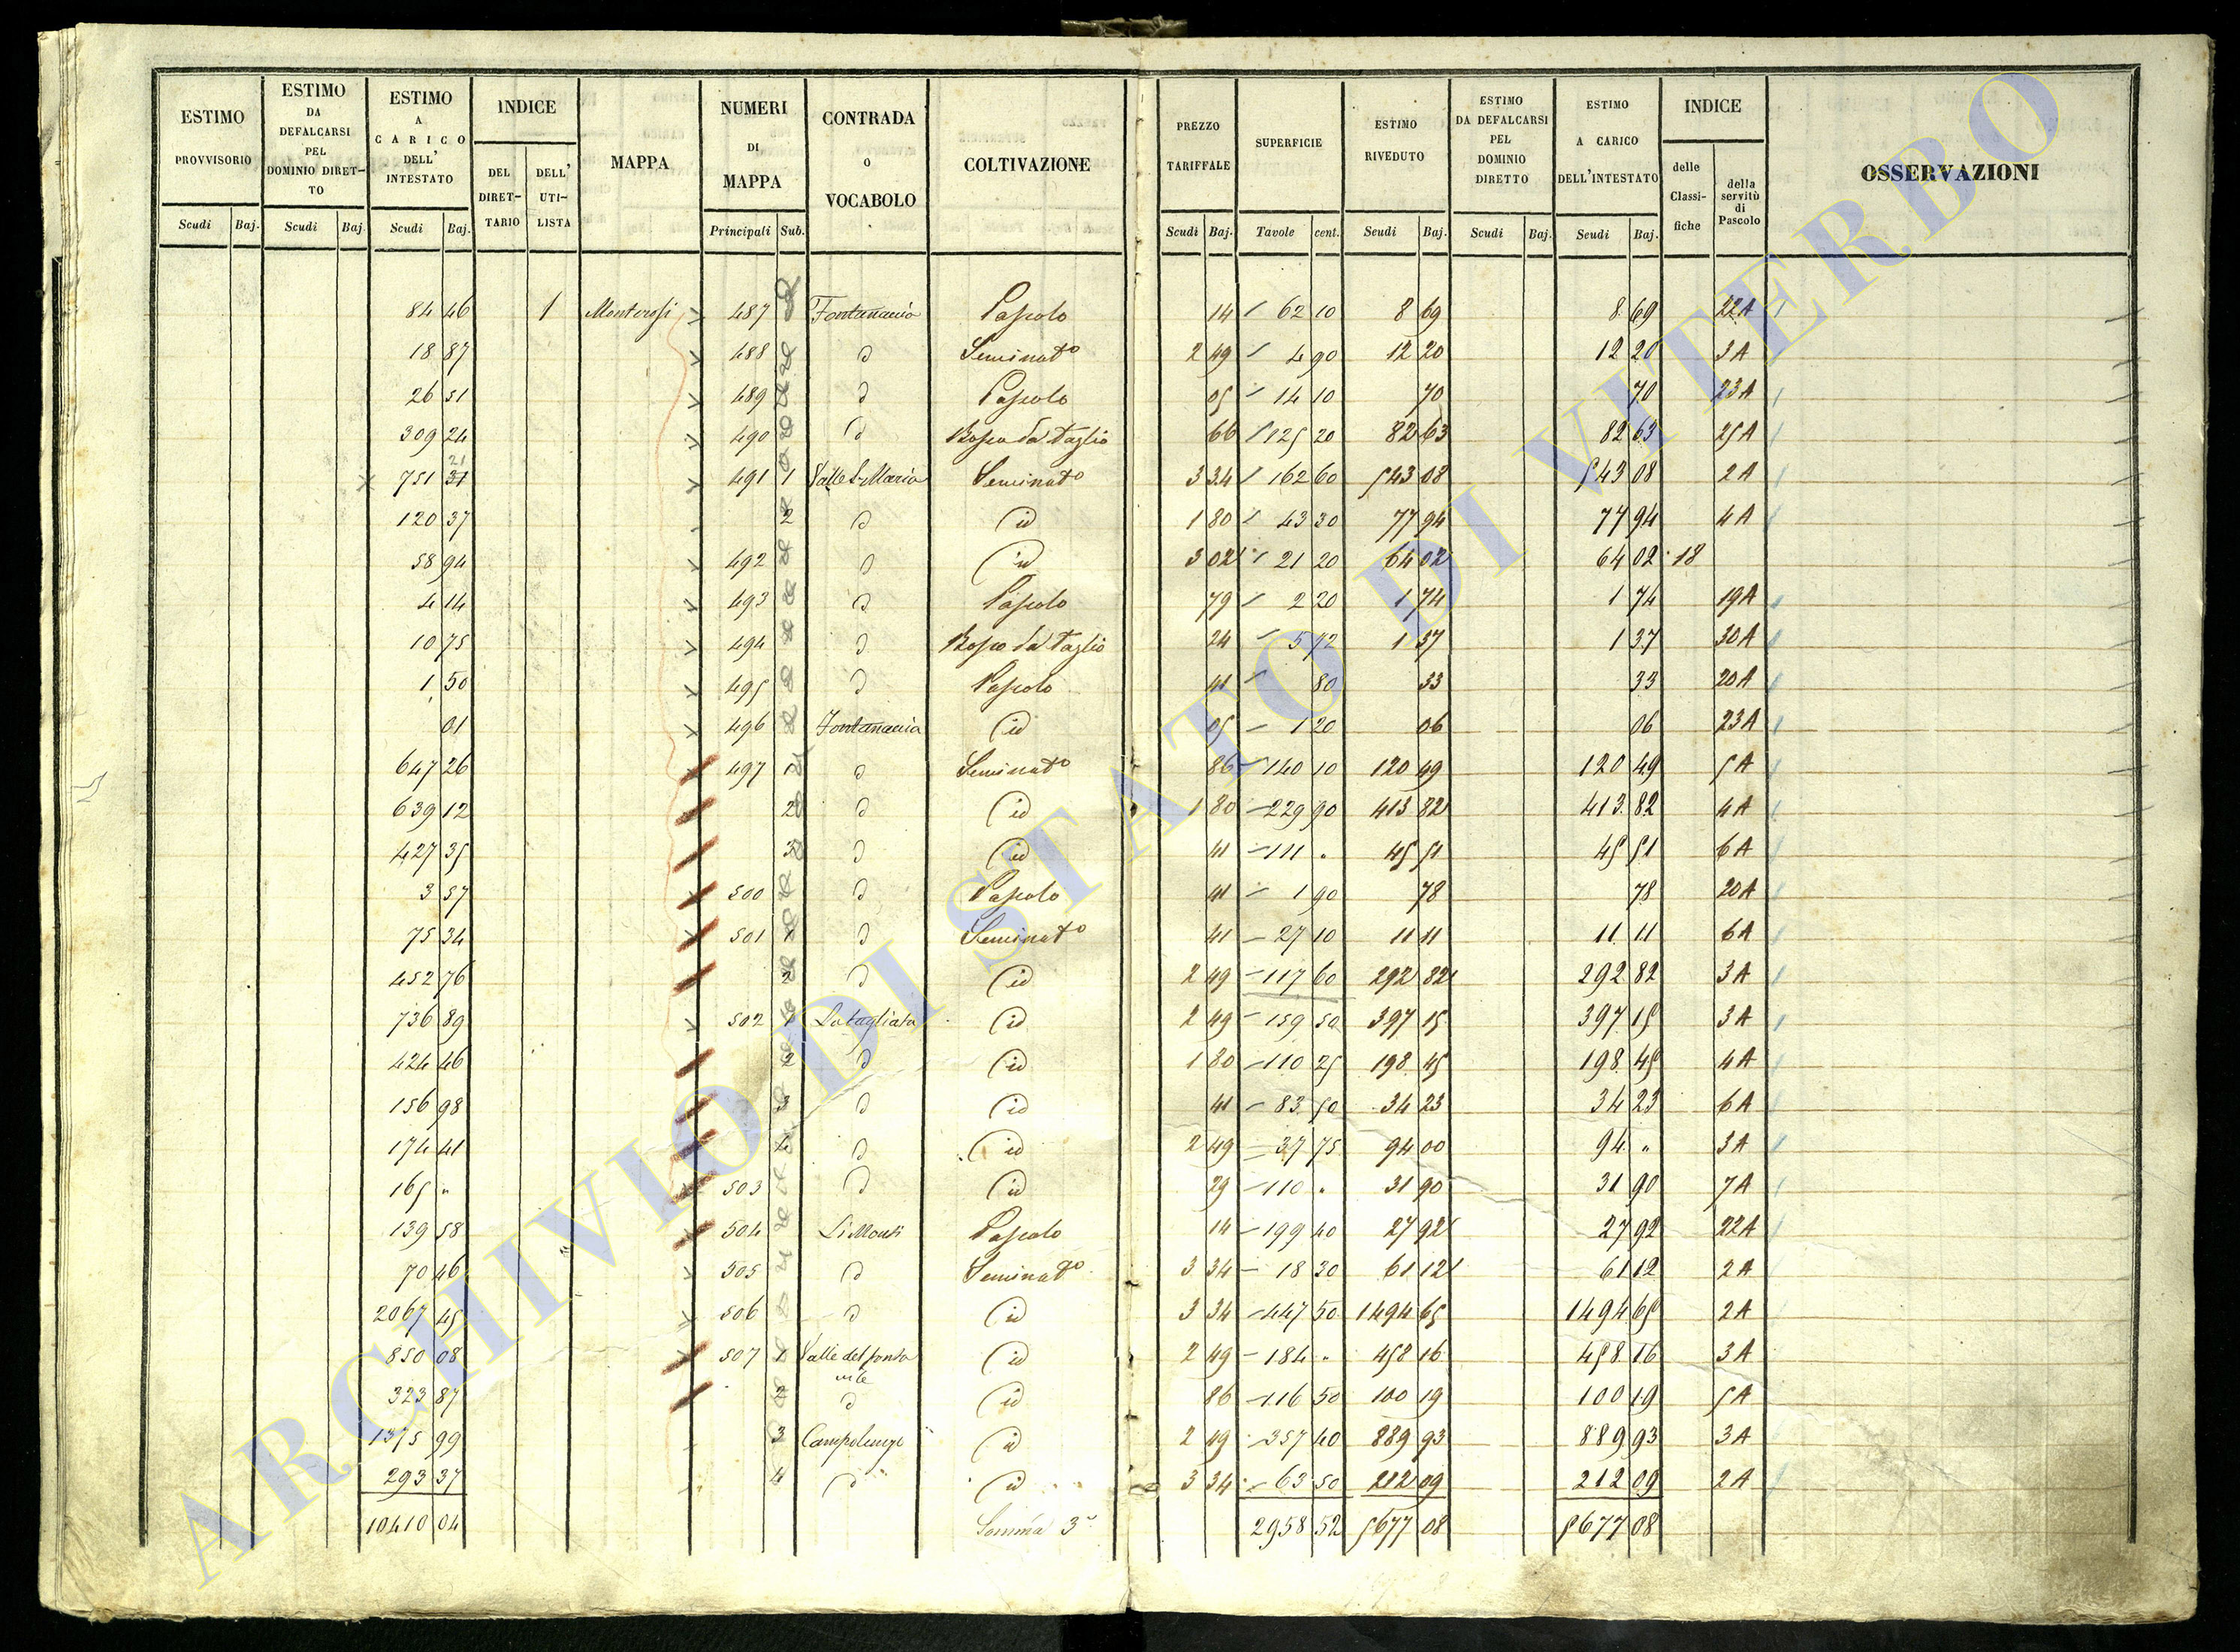 ESTIMO PROVVISORIO Scudi Baj.
ESTIMO DA DEFALCARSI PEL DOMINIO DIRET- TO Scudi Baj
ESTIMO A CARICO DELL' INTESTATO Scudi Baj.
INDICE DEL DIRET- TARIO DELL' UTI- LISTA
MAPPA
NUMERI DI MAPPA Principali Sub.
CONTRADA O VOCABOLO
COLTIVAZIONE
PREZZO TARIFFALE Scudi Baj.
SUPERFICIE Tavole cent.
ESTIMO RIVEDUTO Scudi Baj.
ESTIMO DA DEFALCARSI PEL DOMINIO DIRETTO Scudi Baj.
ESTIMO A CARICO DELL'INTESTATO Scudi Baj.
INDICE delle Classi- fiche della servitù di Pascolo
OSSERVAZIONI
84 46 1 Monterosi 487 Fontanaccia Pascolo 14 62 10 8 69 8 69 22A
18 87 488 d Seminato 2 49 4 90 12 20 12 20 3A
26 51 489 d Pascolo 05 14 10 70 70 23A
309 24 490 d Bosco da Taglio 66 125 20 82 63 82 63 25A
21
751 31 491 1 Valle S. Maria Seminato 3 34 162 60 543 08 543 08 2A
120 37 2 d id 1 80 43 30 77 94 77 94 4A
58 94 492 d id 3 02 21 20 64 02 64 02 18
4 14 493 d Pascolo 79 2 20 1 74 1 74 19A
10 75 494 d Bosco da Taglio 24 5 72 1 37 1 37 30A
1 50 495 d Pascolo 41 80 33 33 20A
01 496 Fontanaccia id 05 1 20 06 06 23A
647 26 497 1 d Seminato 86 140 10 120 49 120 49 5A
639 12 2 d id 1 80 229 90 413 82 413 82 4A
427 35 3 d id 41 111 " 45 51 45 51 6A
3 57 500 d Pascolo 41 1 90 78 78 20A
75 34 501 1 d Seminato 41 27 10 11 11 11 11 6A
452 76 2 d id 2 49 117 60 292 82 292 82 3A
736 89 502 1 La tagliata id 2 49 159 50 397 15 397 15 3A
424 46 2 d id 1 80 110 25 198 45 198 45 4A
156 98 3 d id 41 83 50 34 23 34 23 6A
174 41 4 d id 2 49 37 75 94 00 94 " 3A
165 " 503 d id 29 110 " 31 90 31 90 7A
139 58 504 Li Monti Pascolo 14 199 40 27 92 27 92 22A
70 46 505 d Seminato 3 34 18 30 61 12 61 12 2A
2067 45 506 d id 3 34 447 50 1494 65 1494 65 2A
850 08 507 1 Valle del fonta nile id 2 49 184 " 458 16 458 16 3A
323 87 2 d id 86 116 50 100 19 100 19 5A
1375 99 3 id 2 49 357 40 889 93 889 93 3A
293 37 4 d id 3 34 63 50 212 09 212 09 2A
10410 04 Somma 3a 2958 52 5677 08 5677 08
ARCHIVIO DI STATO DI VITERBO